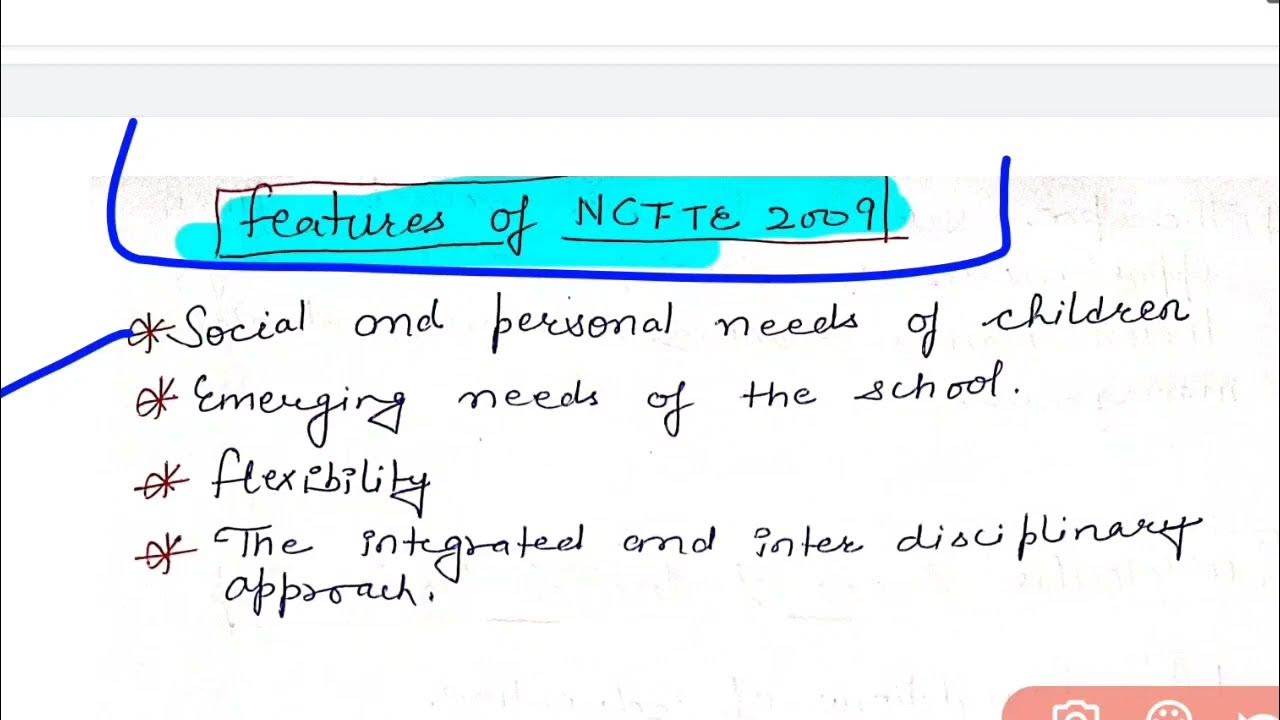 Features of NCFTE 2009
* Social and personal needs of children
* Emerging needs of the school.
* flexibility
* The integrated and inter disciplinary
approach.